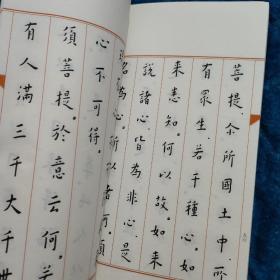 菩提。尒所國土中。所
有眾生。若干種心。如
來悉知。何以故。如來
說諸心皆為非心。是
名為心。所以者何。須
心不可得
須菩提。於意云何。若
有人滿三千大千世